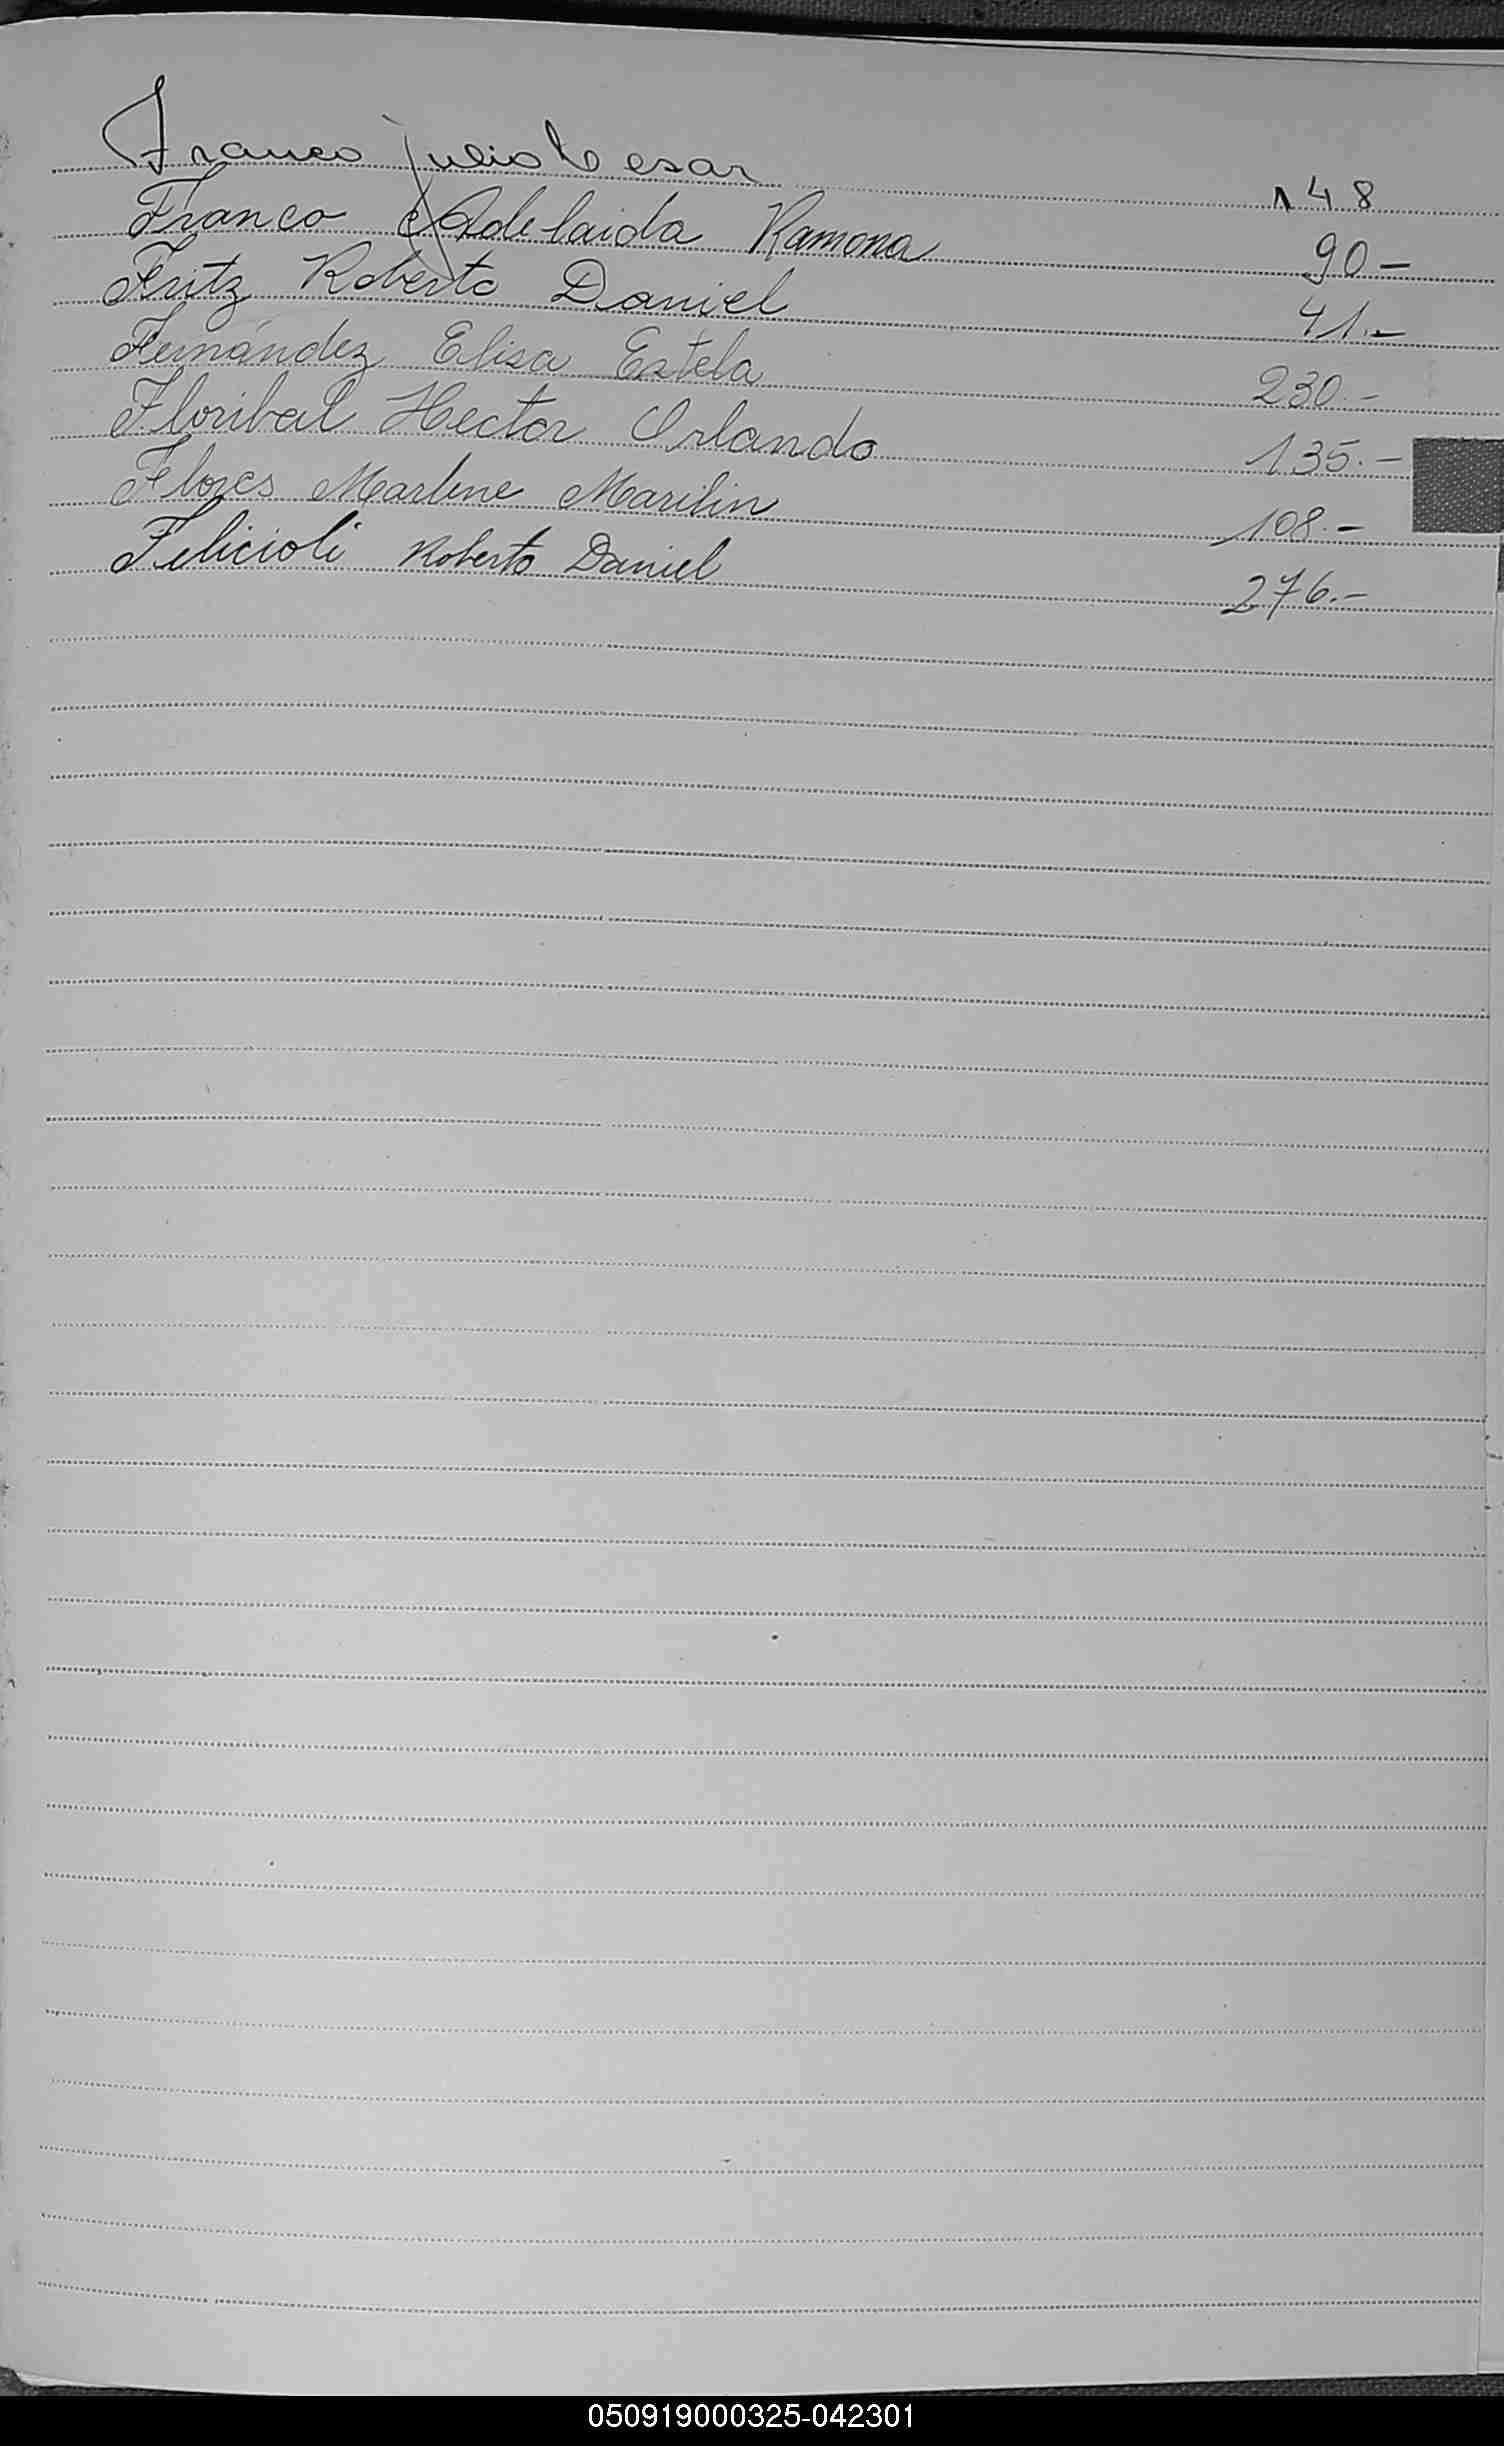 Franco Julio Cesar 148
Franco Adelaida Ramona 90-
Fritz Roberto Daniel 41.-
Fernández Elisa Estela 230.-
Floribal Hector Orlando 135.-
Flores Marlene Marilin 108.-
Felicioli Roberto Daniel 276.-
050919000325-042301